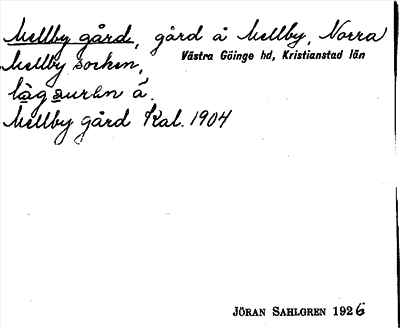 Mellby gård, gård å Mellby, Norra
Västra Göinge hd, Kristianstad län
Mellby socken,
Mellby gård Kal. 1904
JÖRAN SAHLGREN 1926